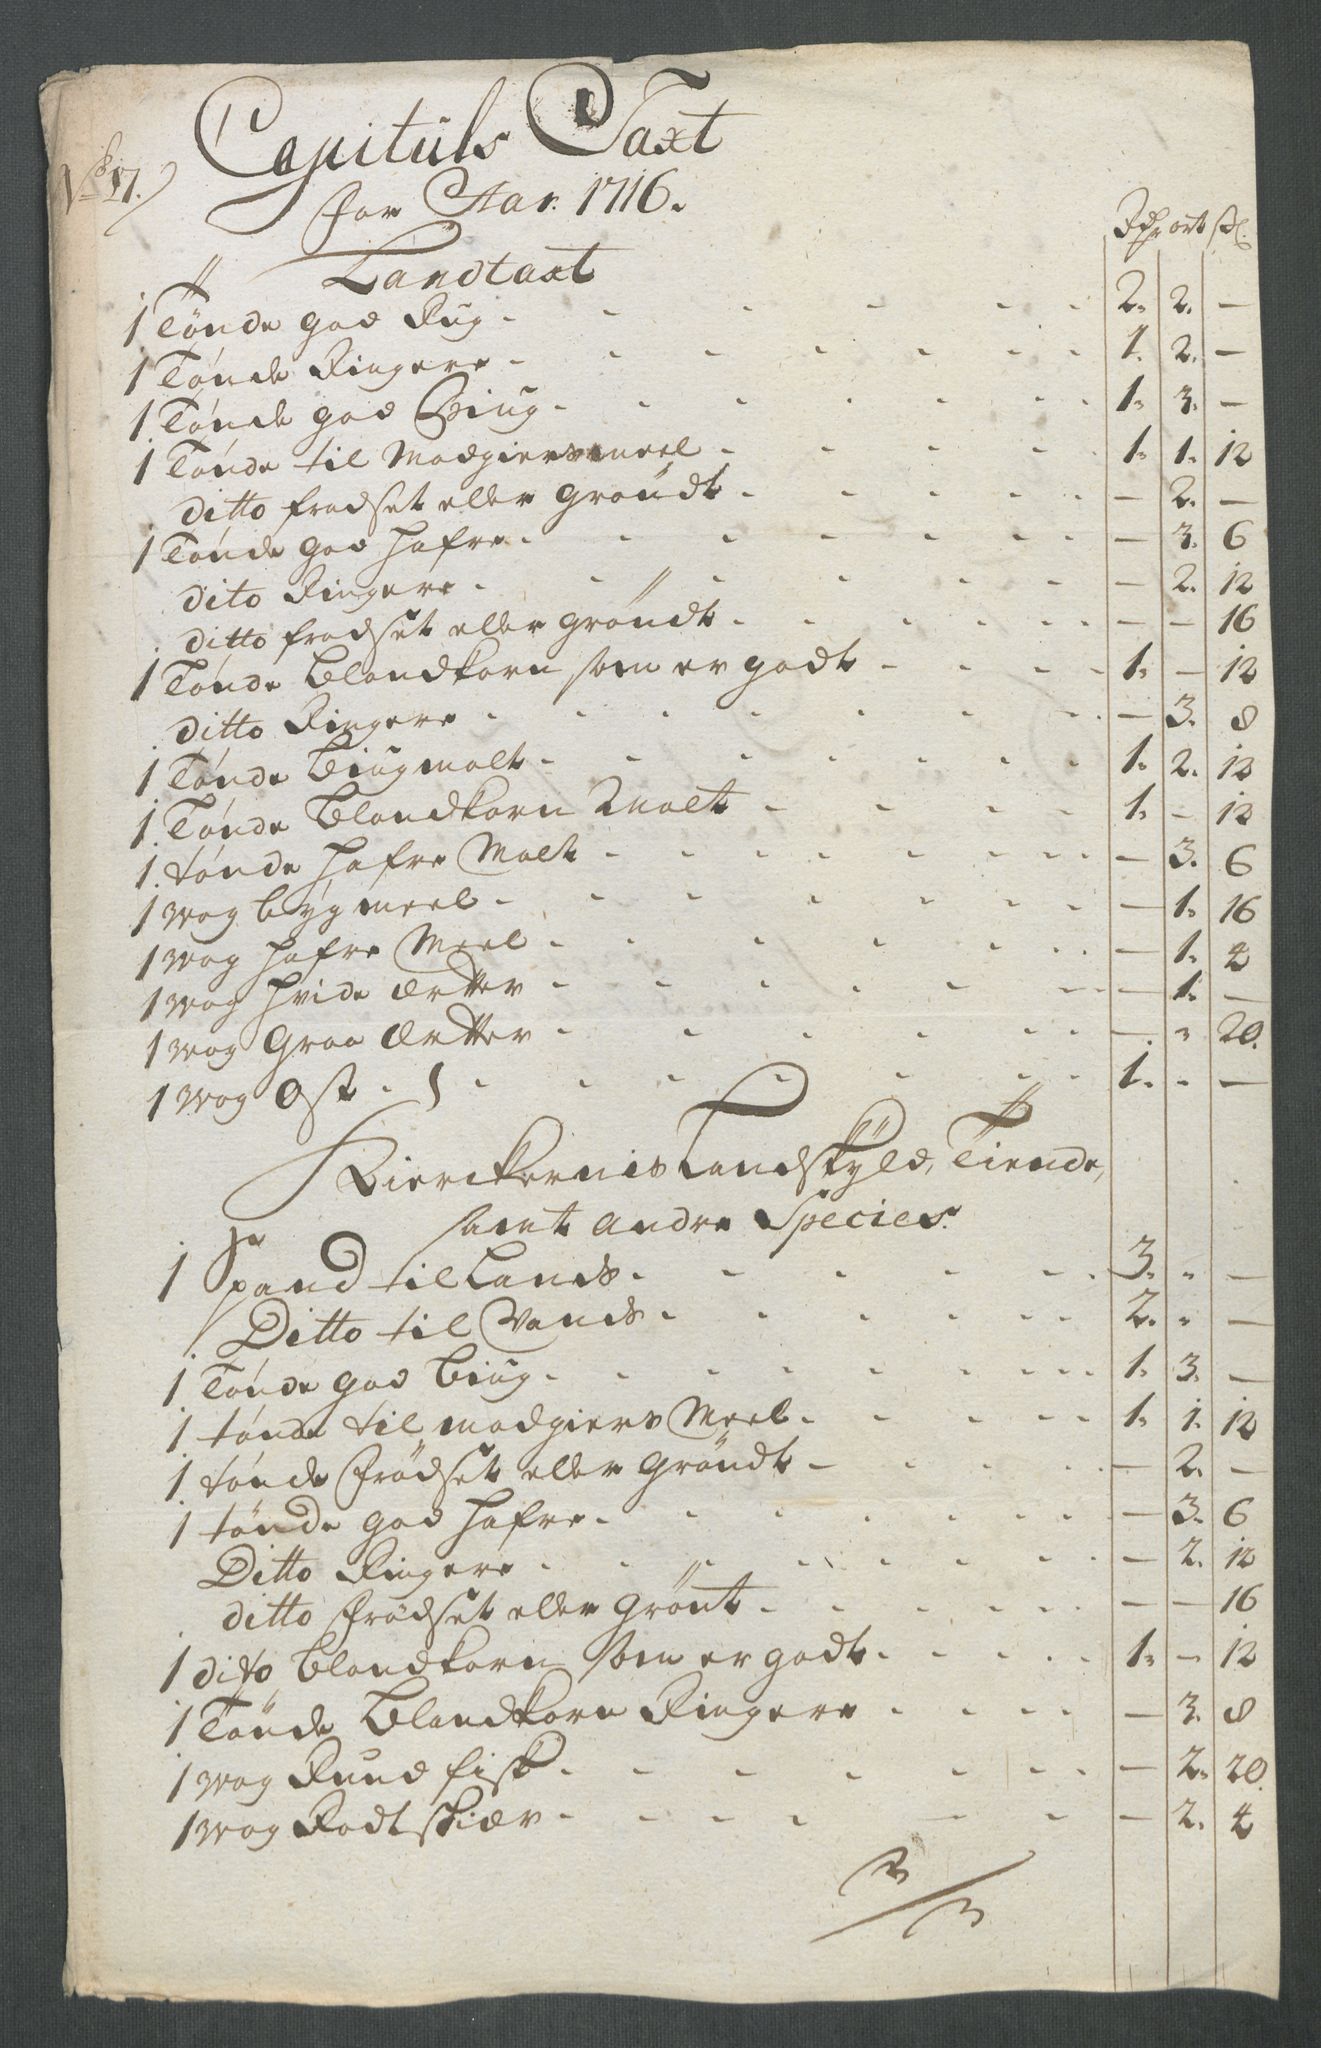 No 17.
Capituls Taxt
for Aar 1716.
Rdr ort sl.
Landtaxt
1 Tønde god Rug - 2. 2. —
1 Tønde Ringere - 1. 2. —
1 Tønde god Biug - 1. 3. —
1 Tønde til Madgiersmeel - 1. 1. 12
ditto fradset eller grøndt - — 2. —
1 Tønde god Hafre - — 3. 6
dito Ringere - — 2. 12
ditto fradset eller grøndt - — — 16
1 Tønde Blandkorn som er godt - 1. — 12
ditto Ringere - — 3. 8
1 Tønde Biugmalt - 1. 2. 12
1 Tønde Blandkorn Malt - 1. — 12
1 tønde Hafre Malt - — 3. 6
1 Wog bÿgmeel - — 1. 16
1 Wog Hafre Meel - — 1. 4
1 Wog Hvide Ertter - — 1. —
1 Wog Graa Ertter - — - 20.
1 Wog Ost - 1. - —
Kierckernis Landskÿld, Tiende,
samt andre Species.
1 Spand til Lands - 3. - —
Ditto til Vands - 2. - —
1 Tønde god Biug - 1. 3. —
1 tønde til madgiers Meel - 1. 1. 12
1 tønde frødset eller grøndt - — 2. —
1 tønde god Hafre - — 3. 6
Ditto Ringere - — 2. 12
ditto frødset eller Grønt - — — 16
1 dito Blandkorn som er godt - 1. — 12
1 Tønde Blandkorn Ringere - — 3. 8
1 Wog Rund fisk - — 2. 20.
1 Wog Rodtskiær - — 2. 4